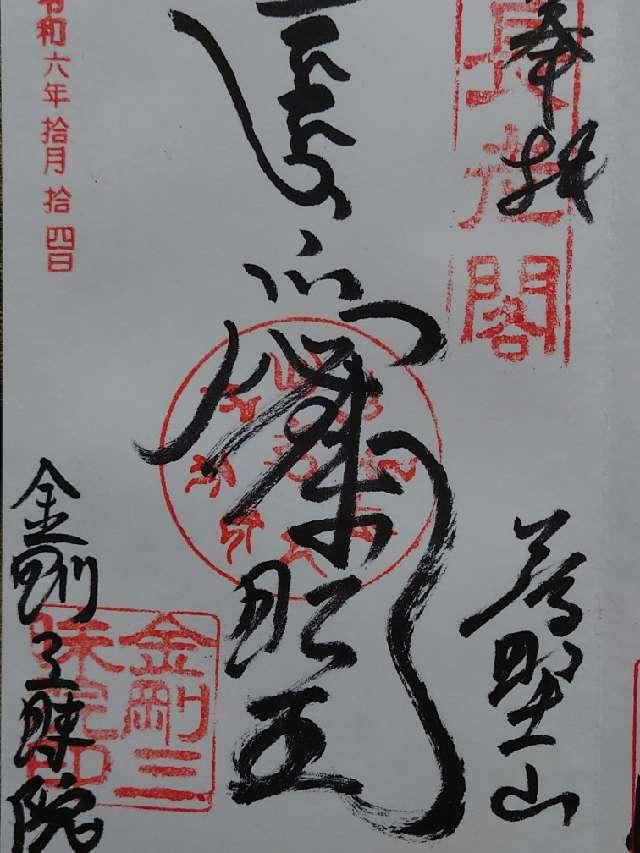 奉拝
長老閣
高野山
愛染明王
令和六年拾月拾四日
金剛三昧院
金剛三
昧院印